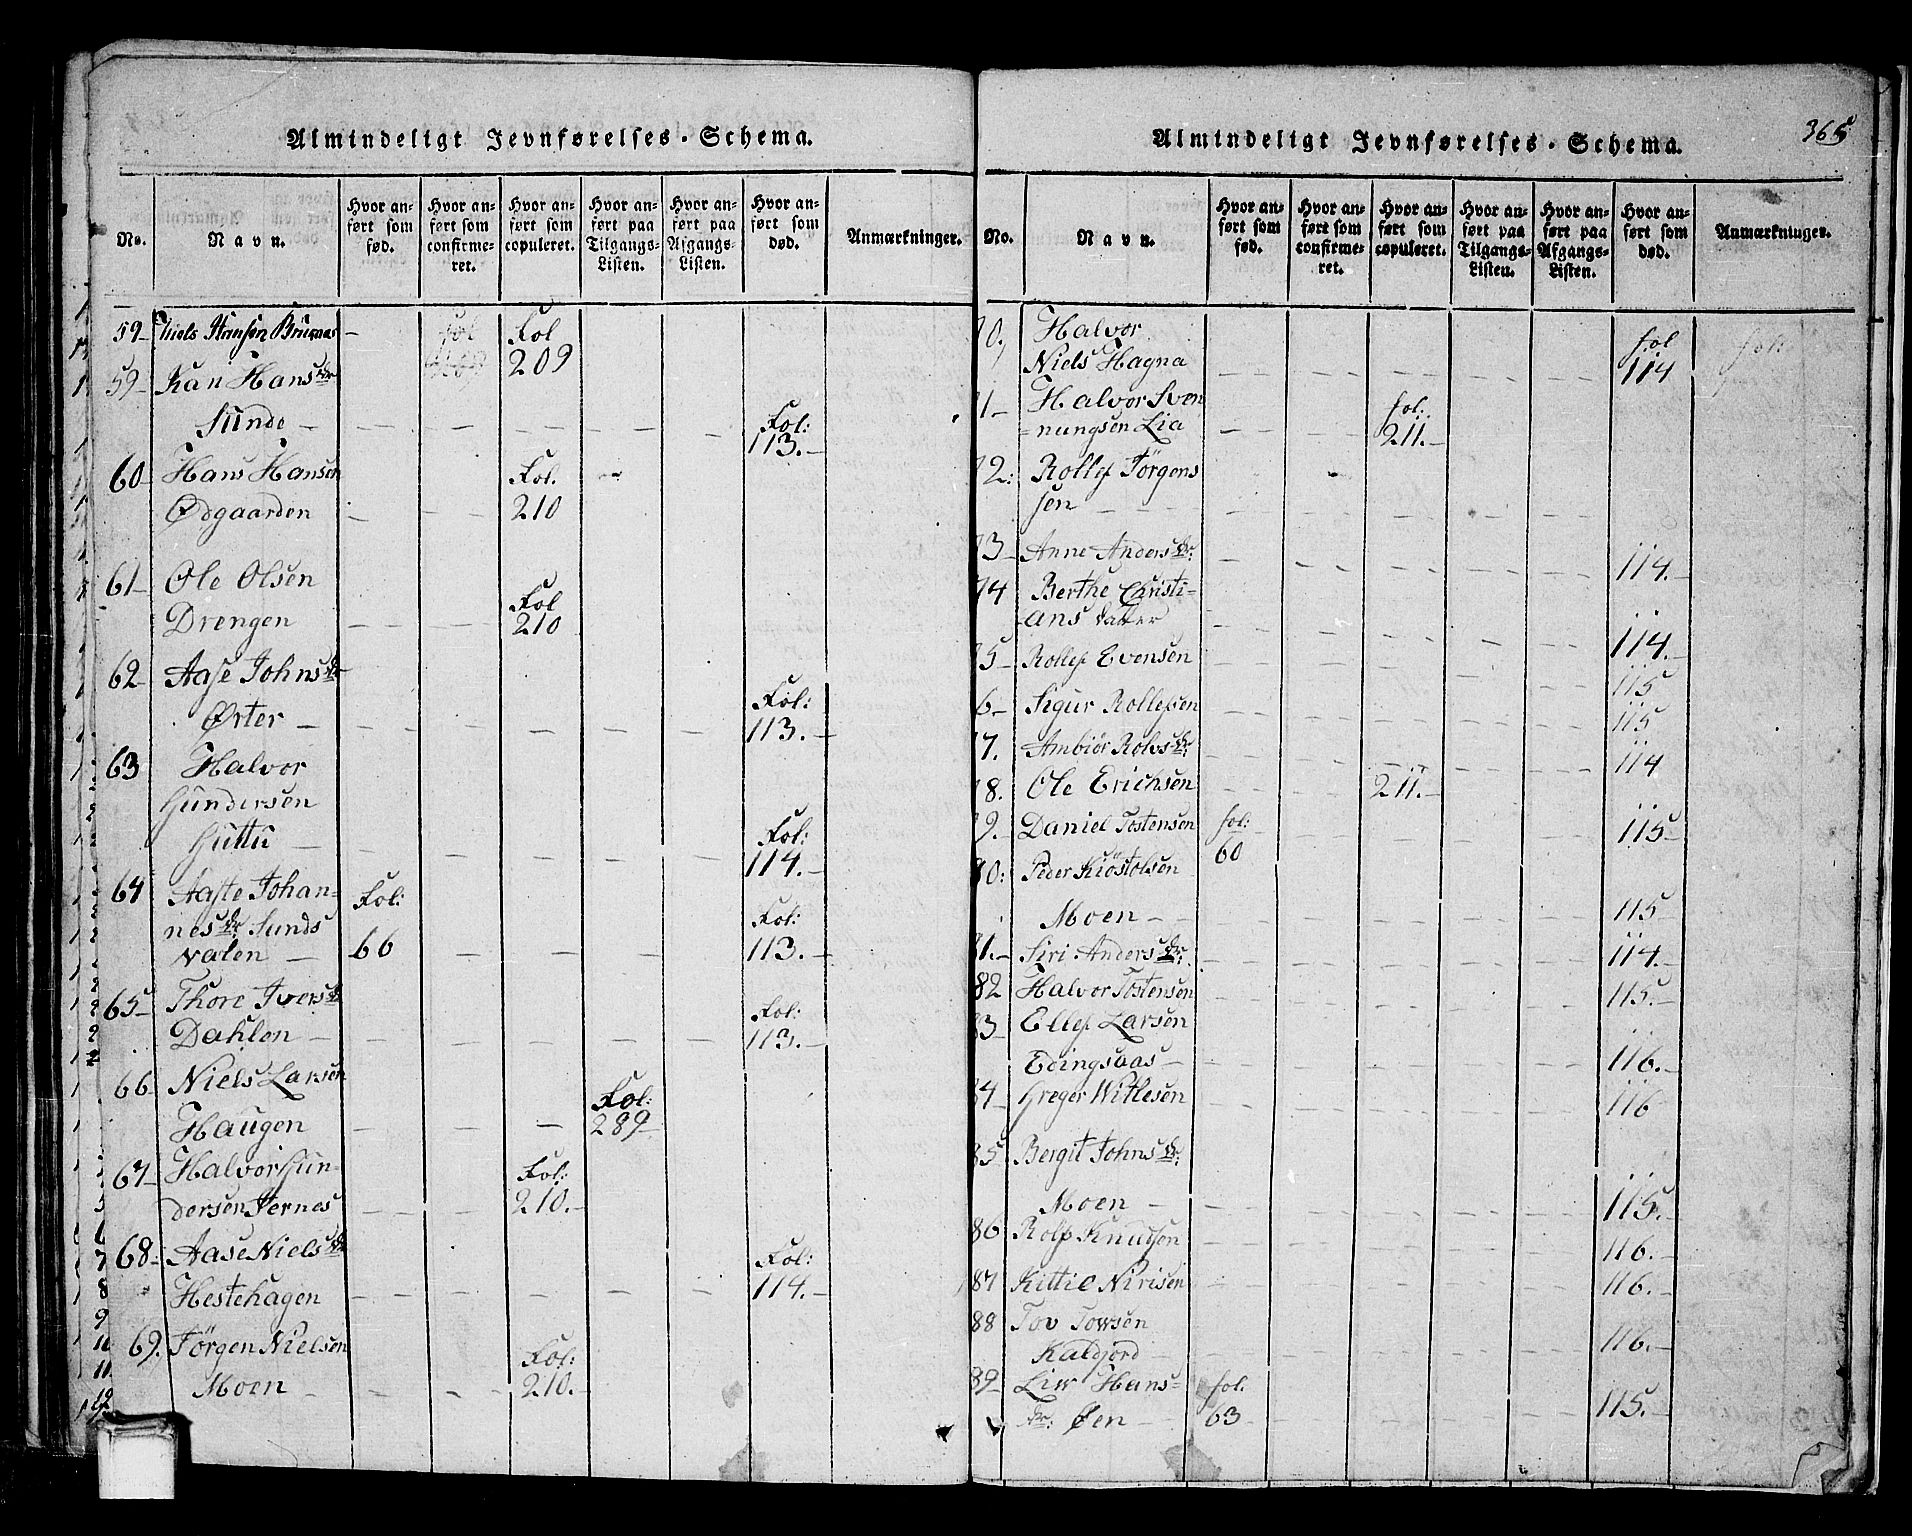 Almindeligt Jevnførelses-Schema.
No.
Navn.
Hvor anført som fød.
Hvor anført som confirmeret.
Hvor anført som copuleret.
Hvor anført paa Tilgangs-Listen.
Hvor anført paa Afgangs-Listen.
Hvor anført som død.
Anmærkninger.
59- Niels Fol Fol
209
59- Kari Hans dr
Sunde - Fol:
113.-
60- Hans Hansen Fol.
Ødgaarden 210
61- Ole Olsen Fol
Drengen 210
62- Aase Johns dr Fol:
Øster - 113.-
63 Halvor
Gundersen Fol:
Guttu - 114.-
64 Aaste Johan- Fol:
nes dr Sunds Fol:
valen - 66 113.-
65- Thore Ivers dr Fol:
Dahlen - 113.-
66 Niels Larsen Fol:
Haugen 289-
67- Halvor Gun- Fol:
dersen 210.-
68- Aase Niels dr Fol:
Hestehagen 114.-
69. Jørgen Nielsen Fol:
Moen - 210.-
365
Almindeligt Jevnførelses-Schema.
No.
Navn.
Hvor anført som fød.
Hvor anført som confirmeret.
Hvor anført som copuleret.
Hvor anført paa Tilgangs-Listen.
Hvor anført paa Afgangs-Listen.
Hvor anført som død.
Anmærkninger.
70, Halvor fol fol:
Niels Hagna 114
71- Halvor Sven fol:
=nungsen Lia 211.-
72: Rollef Jörgens
sen
73- Anne Anders dr: 114.-
74 Berthe Christi-
ans datter 114.-
75- Rollef Evensen 115
76- Sigur Rollefsen 115
77. Ambiør Rolvs dr: 114
78. Ole Erichsen 211.-
79. Daniel Tostensen fol: 115-
60
80: Peder Kiöstolsen
Moen - 115
81.- Siri Anders dr: 114.-
82 Halvor Tostensen 115.-
83- Ellef Larsen
Edingsaas - 116.-
84- Greger Witlesen 116
85- Bergit Johns dr:
Moen - 115.-
86 Rolf Knudsen 116.-
87 Kittil Nirisen 116.-
88 Tov Towsen
Kaldjord 116.-
89- Liw Hans= fol.
dr: Øen 63 115.-